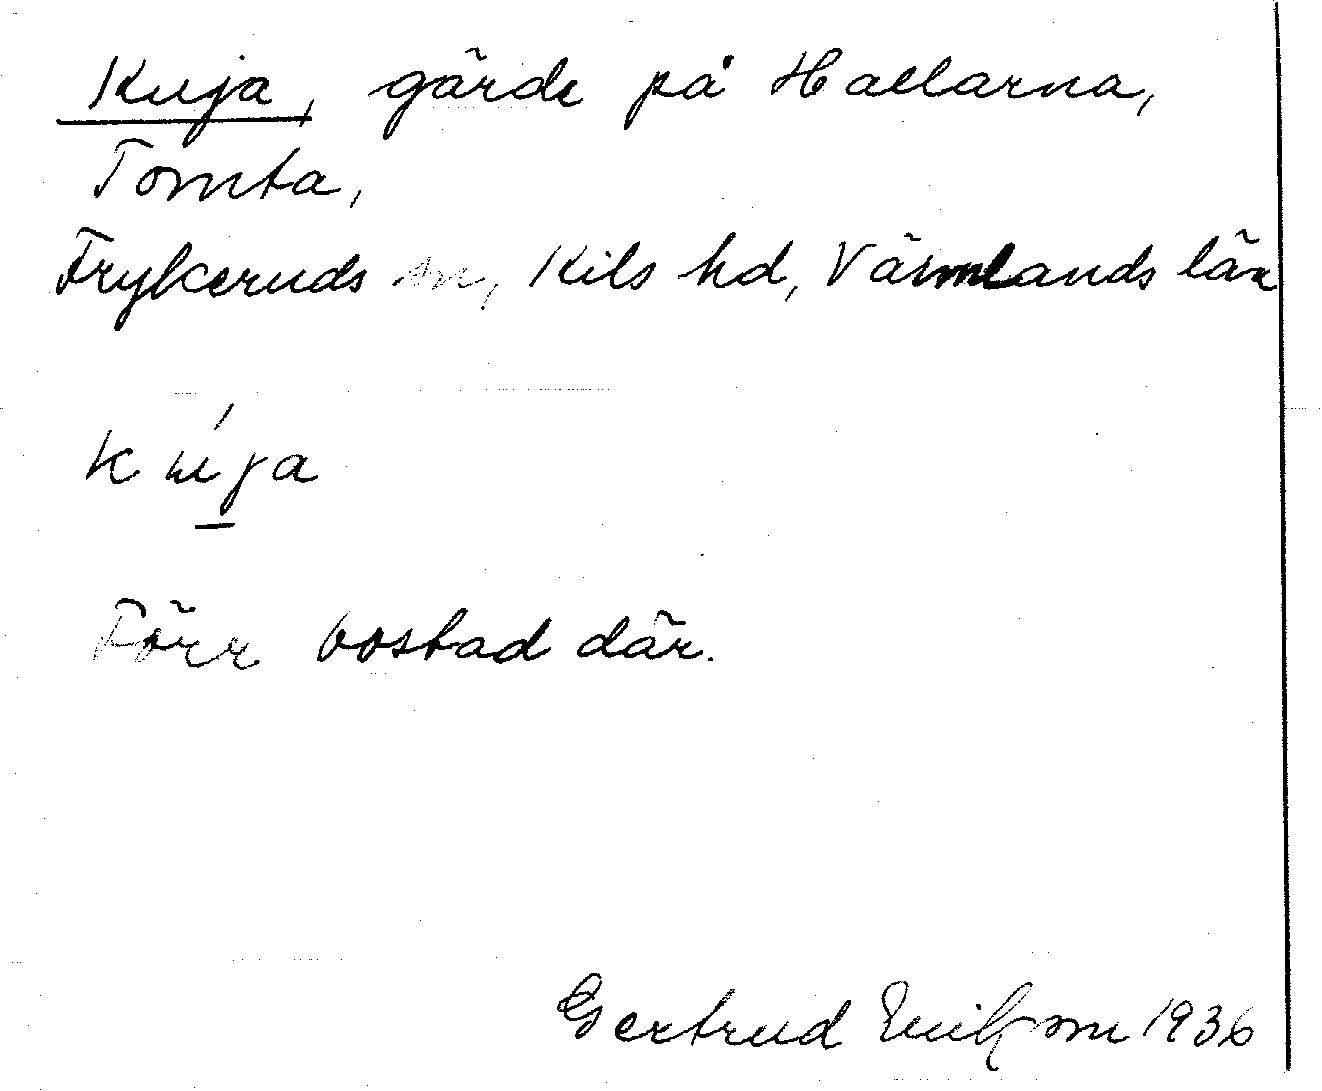 Kuja, gärde på Hallarna,
Tomta,
Frykeruds sn, Kils hd, Värmlands län
kúja
Förr bostad där.
Gertrud Eriksson 1936